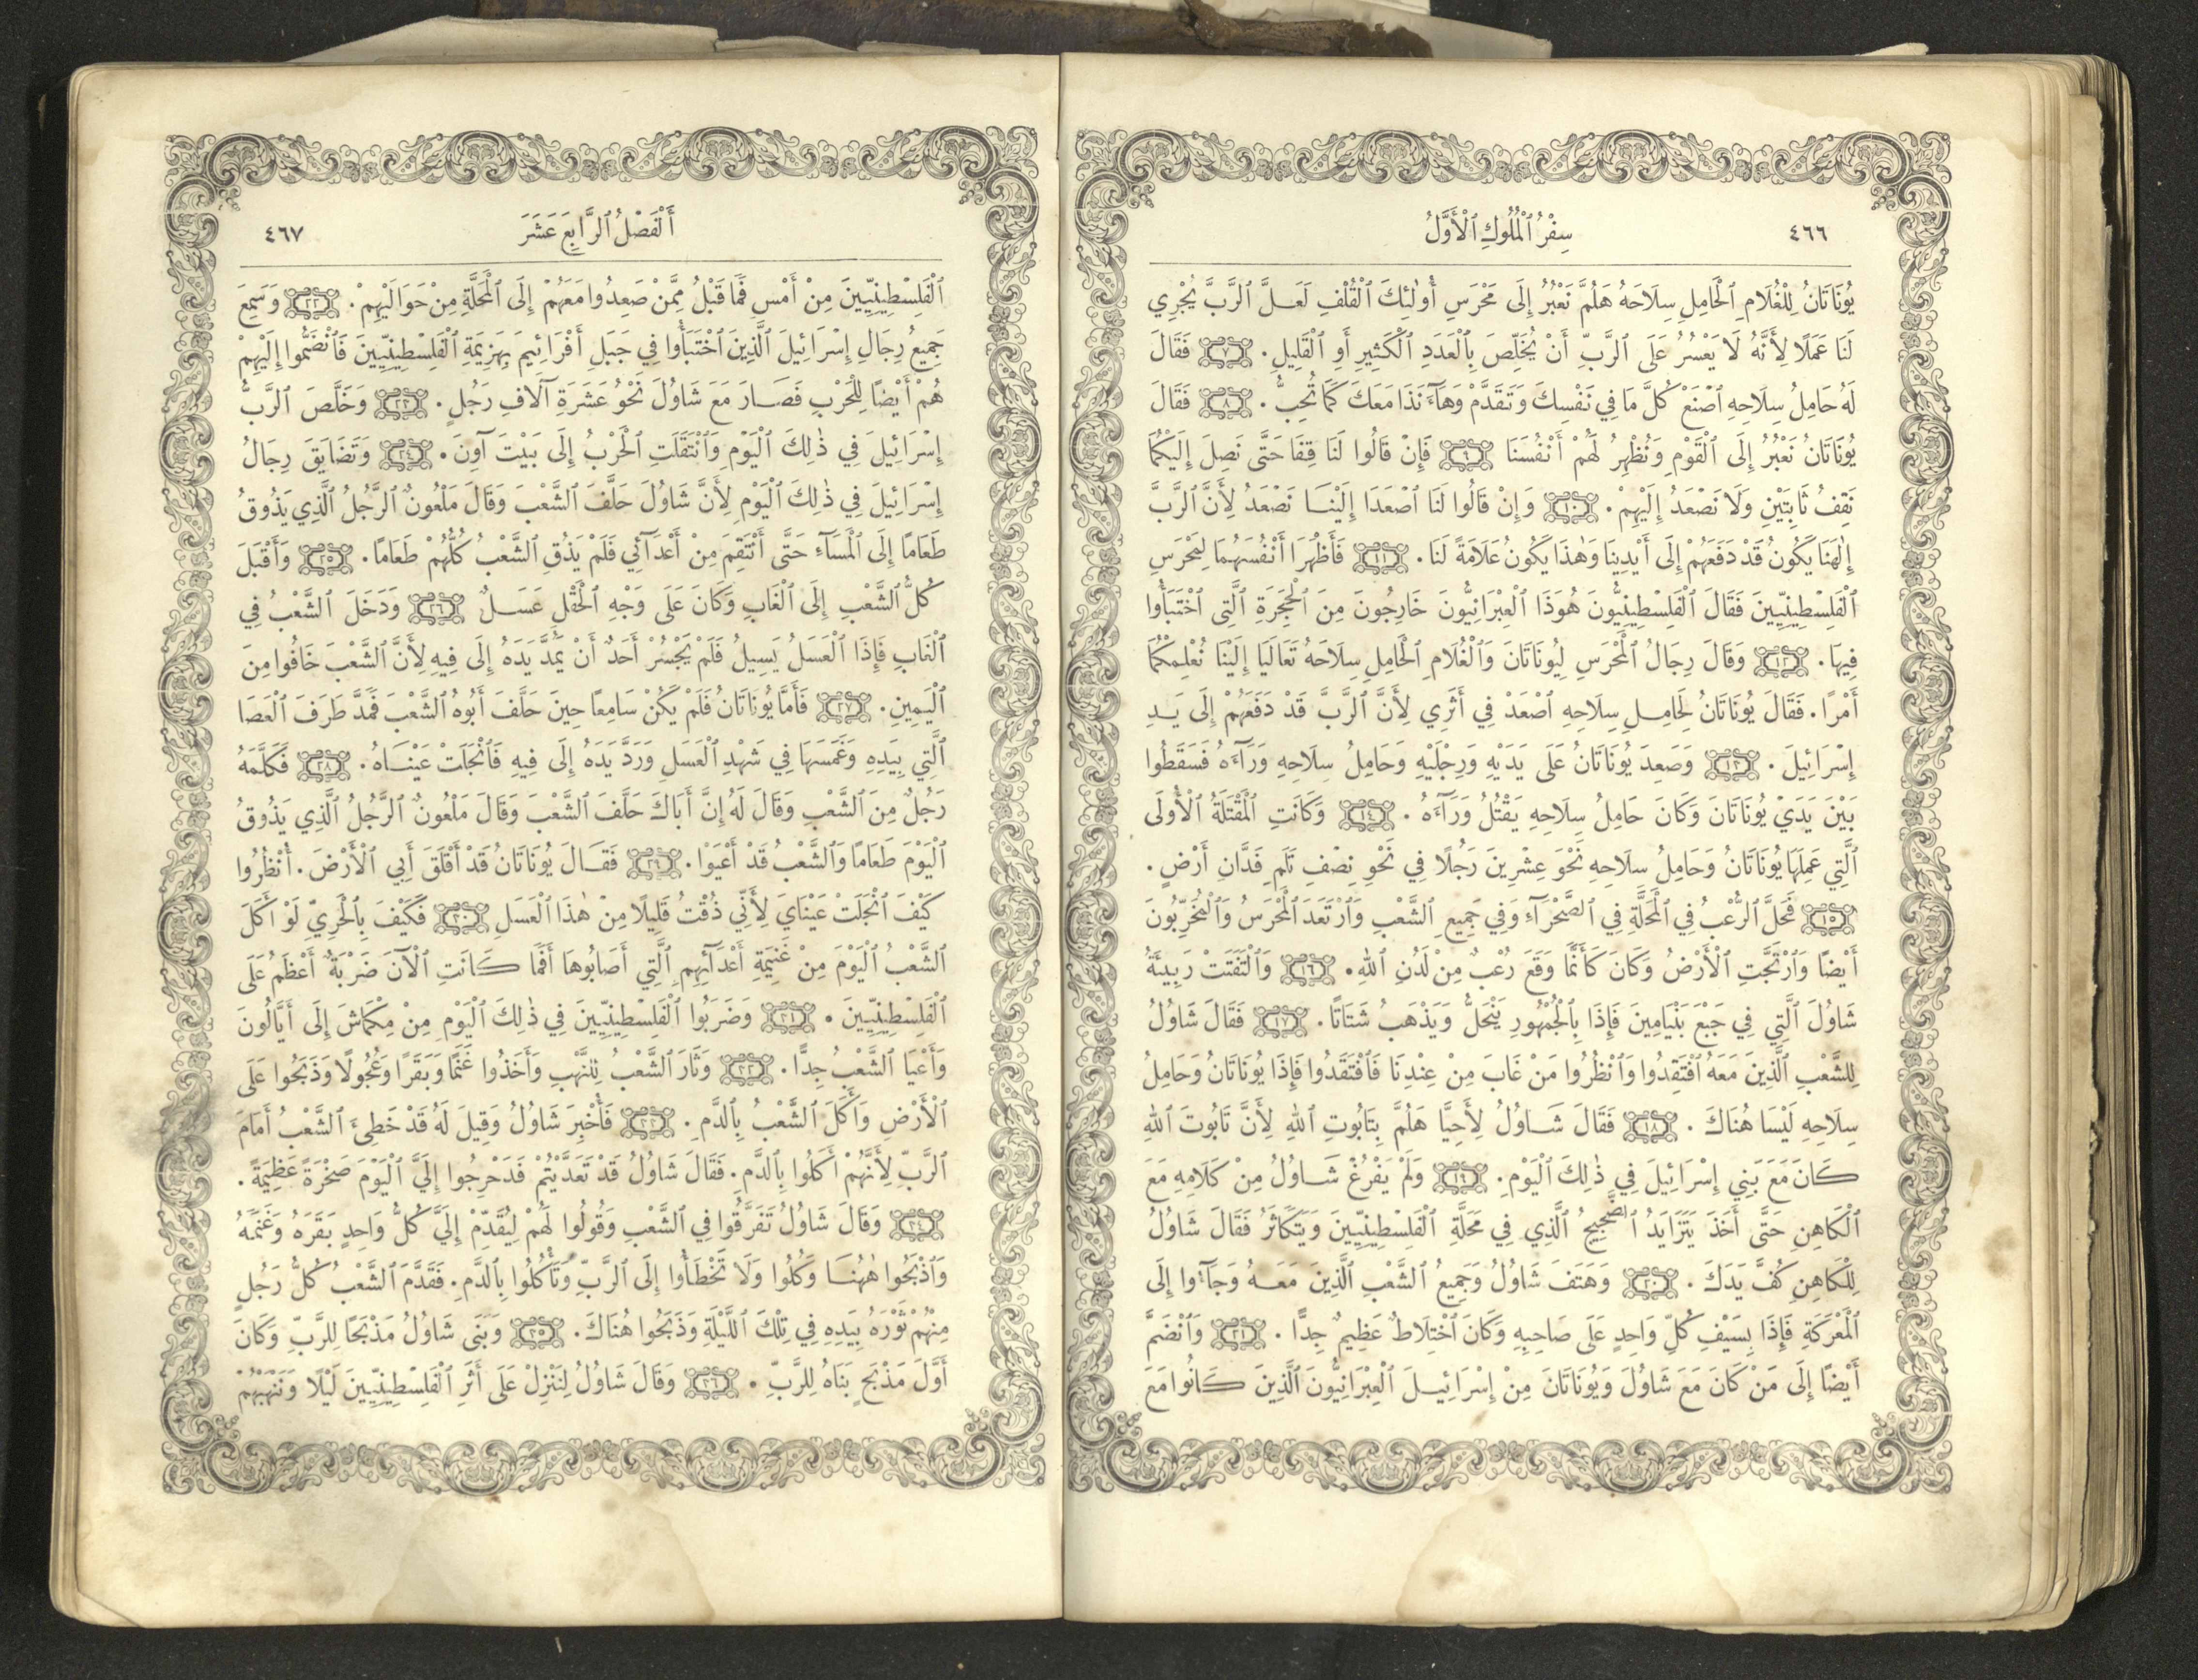 ٤٦٦
سِفْرُ ٱلْمُلُوكِ ٱلْأَوَّلُ
يُونَاتَانُ لِلْغُلَامِ ٱلْحَامِلِ سِلَاحَهُ هَلُمَّ نَعْبُرُ إِلَى مَحْرَسِ أُولٰئِكَ ٱلْقُلْفِ لَعَلَّ ٱلرَّبَّ يُجْرِي
لَنَا عَمَلًا لِأَنَّهُ لَا يَعْسُرُ عَلَى ٱلرَّبِّ أَنْ يُخَلِّصَ بِٱلْعَدَدِ ٱلْكَثِيرِ أَوِ ٱلْقَلِيلِ. ٧ فَقَالَ
لَهُ حَامِلُ سِلَاحِهِ ٱصْنَعْ كُلَّ مَا فِي نَفْسِكَ وَتَقَدَّمْ وَهَآءَنَذَا مَعَكَ كَمَا تُحِبُّ. ٨ فَقَالَ
يُونَاتَانُ نَعْبُرُ إِلَى ٱلْقَوْمِ وَنُظْهِرُ لَهُمْ أَنْفُسَنَا ٩ فَإِنْ قَالُوا لَنَا قِفَا حَتَّى نَصِلَ إِلَيْكُمَا
نَقِفُ ثَابِتَيْنِ وَلَا نَصْعَدُ إِلَيْهِمْ. ١٠ وَإِنْ قَالُوا لَنَا ٱصْعَدَا إِلَيْنَا نَصْعَدُ لِأَنَّ ٱلرَّبَّ
إِلٰهَنَا يَكُونُ قَدْ دَفَعَهُمْ إِلَى أَيْدِينَا وَهٰذَا يَكُونُ عَلَامَةً لَنَا. ١١ فَأَظْهَرَا أَنْفُسَهُمَا لِمَحْرَسِ
ٱلْفَلِسْطِينِيِّينَ فَقَالَ ٱلْفَلِسْطِينِيُّونَ هُوَذَا ٱلْعِبْرَانِيُّونَ خَارِجُونَ مِنَ ٱلْحِجَرَةِ ٱلَّتِي ٱخْتَبَأُوا
فِيهَا. ١٢ وَقَالَ رِجَالُ ٱلْمَحْرَسِ لِيُونَاتَانَ وَٱلْغُلَامِ ٱلْحَامِلِ سِلَاحَهُ تَعَالَيَا إِلَيْنَا نُعْلِمْكُمَا
أَمْرًا. فَقَالَ يُونَاتَانُ لِحَامِلِ سِلَاحِهِ ٱصْعَدْ فِي أَثَرِي لِأَنَّ ٱلرَّبَّ قَدْ دَفَعَهُمْ إِلَى يَدِ
إِسْرَائِيلَ. ١٣ وَصَعِدَ يُونَاتَانُ عَلَى يَدَيْهِ وَرِجْلَيْهِ وَحَامِلُ سِلَاحِهِ وَرَآءَهُ فَسَقَطُوا
بَيْنَ يَدَيْ يُونَاتَانَ وَكَانَ حَامِلُ سِلَاحِهِ يَقْتُلُ وَرَآءَهُ. ١٤ وَكَانَتِ ٱلْمَقْتَلَةُ ٱلْأُولَى
ٱلَّتِي عَمِلَهَا يُونَاتَانُ وَحَامِلُ سِلَاحِهِ نَحْوَ عِشْرِينَ رَجُلًا فِي نَحْوِ نِصْفِ تَلَمِ فَدَّانِ أَرْضٍ.
١٥ فَحَلَّ ٱلرُّعْبُ فِي ٱلْمَحَلَّةِ فِي ٱلصَّحْرَآءِ وَفِي جَمِيعِ ٱلشَّعْبِ وَٱرْتَعَدَ ٱلْمَحْرَسُ وَٱلْمُخَرِّبُونَ
أَيْضًا وَٱرْتَجَّتِ ٱلْأَرْضُ وَكَانَ كَأَنَّمَا وَقَعَ رُعْبٌ مِنْ لَدُنِ ٱللهِ. ١٦ وَٱلْتَفَتَتْ رَبِيئَةُ
شَاوُلَ ٱلَّتِي فِي جَبْعَ بَنْيَامِينَ فَإِذَا بِٱلْجُمْهُورِ يَنْحَلُّ وَيَذْهَبُ شَتَاتًا. ١٧ فَقَالَ شَاوُلُ
لِلشَّعْبِ ٱلَّذِينَ مَعَهُ ٱفْتَقِدُوا وَٱنْظُرُوا مَنْ غَابَ مِنْ عِنْدِنَا فَٱفْتَقَدُوا فَإِذَا يُونَاتَانُ وَحَامِلُ
سِلَاحِهِ لَيْسَا هُنَاكَ. ١٨ فَقَالَ شَاوُلُ لِأَحِيَّا هَلُمَّ بِتَابُوتِ ٱللهِ لِأَنَّ تَابُوتَ ٱللهِ
كَانَ مَعَ بَنِي إِسْرَائِيلَ فِي ذٰلِكَ ٱلْيَوْمِ. ١٩ وَلَمْ يَفْرُغْ شَاوُلُ مِنْ كَلَامِهِ مَعَ
ٱلْكَاهِنِ حَتَّى أَخَذَ يَتَزَايَدُ ٱلضَّجِيجُ ٱلَّذِي فِي مَحَلَّةِ ٱلْفَلِسْطِينِيِّينَ وَيَتَكَاثَرُ فَقَالَ شَاوُلُ
لِلْكَاهِنِ كُفَّ يَدَكَ. ٢٠ وَهَتَفَ شَاوُلُ وَجَمِيعُ ٱلشَّعْبِ ٱلَّذِينَ مَعَهُ وَجَآءُوا إِلَى
ٱلْمَعْرَكَةِ فَإِذَا بِسَيْفِ كُلِّ وَاحِدٍ عَلَى صَاحِبِهِ وَكَانَ ٱخْتِلَاطٌ عَظِيمٌ جِدًّا. ٢١ وَٱنْضَمَّ
أَيْضًا إِلَى مَنْ كَانَ مَعَ شَاوُلَ وَيُونَاتَانَ مِنْ إِسْرَائِيلَ ٱلْعِبْرَانِيُّونَ ٱلَّذِينَ كَانُوا مَعَ
أَلْفَصْلُ ٱلرَّابِعَ عَشَرَ
٤٦٧
ٱلْفَلِسْطِينِيِّينَ مِنْ أَمْسِ فَمَا قَبْلُ مِمَّنْ صَعِدُوا مَعَهُمْ إِلَى ٱلْمَحَلَّةِ مِنْ حَوَالَيْهِمْ. ٢٢ وَسَمِعَ
جَمِيعُ رِجَالِ إِسْرَائِيلَ ٱلَّذِينَ ٱخْتَبَأُوا فِي جَبَلِ أَفْرَائِيمَ بِهَزِيمَةِ ٱلْفَلِسْطِينِيِّينَ فَٱنْضَمُّوا إِلَيْهِمْ
هُمْ أَيْضًا لِلْحَرْبِ فَصَارَ مَعَ شَاوُلَ نَحْوُ عَشَرَةِ آلَافِ رَجُلٍ. ٢٣ وَخَلَّصَ ٱلرَّبُّ
إِسْرَائِيلَ فِي ذٰلِكَ ٱلْيَوْمِ وَٱنْتَقَلَتِ ٱلْحَرْبُ إِلَى بَيْتَ آوِنَ. ٢٤ وَتَضَايَقَ رِجَالُ
إِسْرَائِيلَ فِي ذٰلِكَ ٱلْيَوْمِ لِأَنَّ شَاوُلَ حَلَّفَ ٱلشَّعْبَ وَقَالَ مَلْعُونٌ ٱلرَّجُلُ ٱلَّذِي يَذُوقُ
طَعَامًا إِلَى ٱلْمَسَآءِ حَتَّى أَنْتَقِمَ مِنْ أَعْدَآئِي فَلَمْ يَذُقِ ٱلشَّعْبُ كُلُّهُمْ طَعَامًا. ٢٥ وَأَقْبَلَ
كُلُّ ٱلشَّعْبِ إِلَى ٱلْغَابِ وَكَانَ عَلَى وَجْهِ ٱلْحَقْلِ عَسَلٌ ٢٦ وَدَخَلَ ٱلشَّعْبُ فِي
ٱلْغَابِ فَإِذَا ٱلْعَسَلُ يَسِيلُ فَلَمْ يَجْسُرْ أَحَدٌ أَنْ يَمُدَّ يَدَهُ إِلَى فِيهِ لِأَنَّ ٱلشَّعْبَ خَافُوا مِنَ
ٱلْيَمِينِ. ٢٧ فَأَمَّا يُونَاتَانُ فَلَمْ يَكُنْ سَامِعًا حِينَ حَلَّفَ أَبُوهُ ٱلشَّعْبَ فَمَدَّ طَرَفَ ٱلْعَصَا
ٱلَّتِي بِيَدِهِ وَغَمَسَهَا فِي شَهْدِ ٱلْعَسَلِ وَرَدَّ يَدَهُ إِلَى فِيهِ فَٱنْجَلَتْ عَيْنَاهُ. ٢٨ فَكَلَّمَهُ
رَجُلٌ مِنَ ٱلشَّعْبِ وَقَالَ لَهُ إِنَّ أَبَاكَ حَلَّفَ ٱلشَّعْبَ وَقَالَ مَلْعُونٌ ٱلرَّجُلُ ٱلَّذِي يَذُوقُ
ٱلْيَوْمَ طَعَامًا وَٱلشَّعْبُ قَدْ أَعْيَوْا. ٢٩ فَقَالَ يُونَاتَانُ قَدْ أَقْلَقَ أَبِي ٱلْأَرْضَ. أُنْظُرُوا
كَيْفَ ٱنْجَلَتْ عَيْنَايَ لِأَنِّي ذُقْتُ قَلِيلًا مِنْ هٰذَا ٱلْعَسَلِ ٣٠ فَكَيْفَ بِٱلْحَرِيِّ لَوْ أَكَلَ
ٱلشَّعْبُ ٱلْيَوْمَ مِنْ غَنِيمَةِ أَعْدَآئِهِمِ ٱلَّتِي أَصَابُوهَا أَفَمَا كَانَتِ ٱلْآنَ ضَرْبَةٌ أَعْظَمُ عَلَى
ٱلْفَلِسْطِينِيِّينَ. ٣١ وَضَرَبُوا ٱلْفَلِسْطِينِيِّينَ فِي ذٰلِكَ ٱلْيَوْمِ مِنْ مِكْمَاشَ إِلَى أَيَّالُونَ
وَأَعْيَا ٱلشَّعْبُ جِدًّا. ٣٢ وَثَارَ ٱلشَّعْبُ لِلنَّهْبِ وَأَخَذُوا غَنَمًا وَبَقَرًا وَعُجُولًا وَذَبَحُوا عَلَى
ٱلْأَرْضِ وَأَكَلَ ٱلشَّعْبُ بِٱلدَّمِ. ٣٣ فَأُخْبِرَ شَاوُلُ وَقِيلَ لَهُ قَدْ خَطِئَ ٱلشَّعْبُ أَمَامَ
ٱلرَّبِّ لِأَنَّهُمْ أَكَلُوا بِٱلدَّمِ. فَقَالَ شَاوُلُ قَدْ تَعَدَّيْتُمْ فَدَحْرِجُوا إِلَيَّ ٱلْيَوْمَ صَخْرَةً عَظِيمَةً.
٣٤ وَقَالَ شَاوُلُ تَفَرَّقُوا فِي ٱلشَّعْبِ وَقُولُوا لَهُمْ لِيُقَدِّمْ إِلَيَّ كُلُّ وَاحِدٍ بَقَرَهُ وَغَنَمَهُ
وَٱذْبَحُوا هٰهُنَا وَكُلُوا وَلَا تَخْطَأُوا إِلَى ٱلرَّبِّ وَتَأْكُلُوا بِٱلدَّمِ. فَقَدَّمَ ٱلشَّعْبُ كُلُّ رَجُلٍ
مِنْهُمْ ثَوْرَهُ بِيَدِهِ فِي تِلْكَ ٱللَّيْلَةِ وَذَبَحُوا هُنَاكَ. ٣٥ وَبَنَى شَاوُلُ مَذْبَحًا لِلرَّبِّ وَكَانَ
أَوَّلَ مَذْبَحٍ بَنَاهُ لِلرَّبِّ. ٣٦ وَقَالَ شَاوُلُ لِنَنْزِلْ عَلَى أَثَرِ ٱلْفَلِسْطِينِيِّينَ لَيْلًا وَنَنْهَبْهُمْ